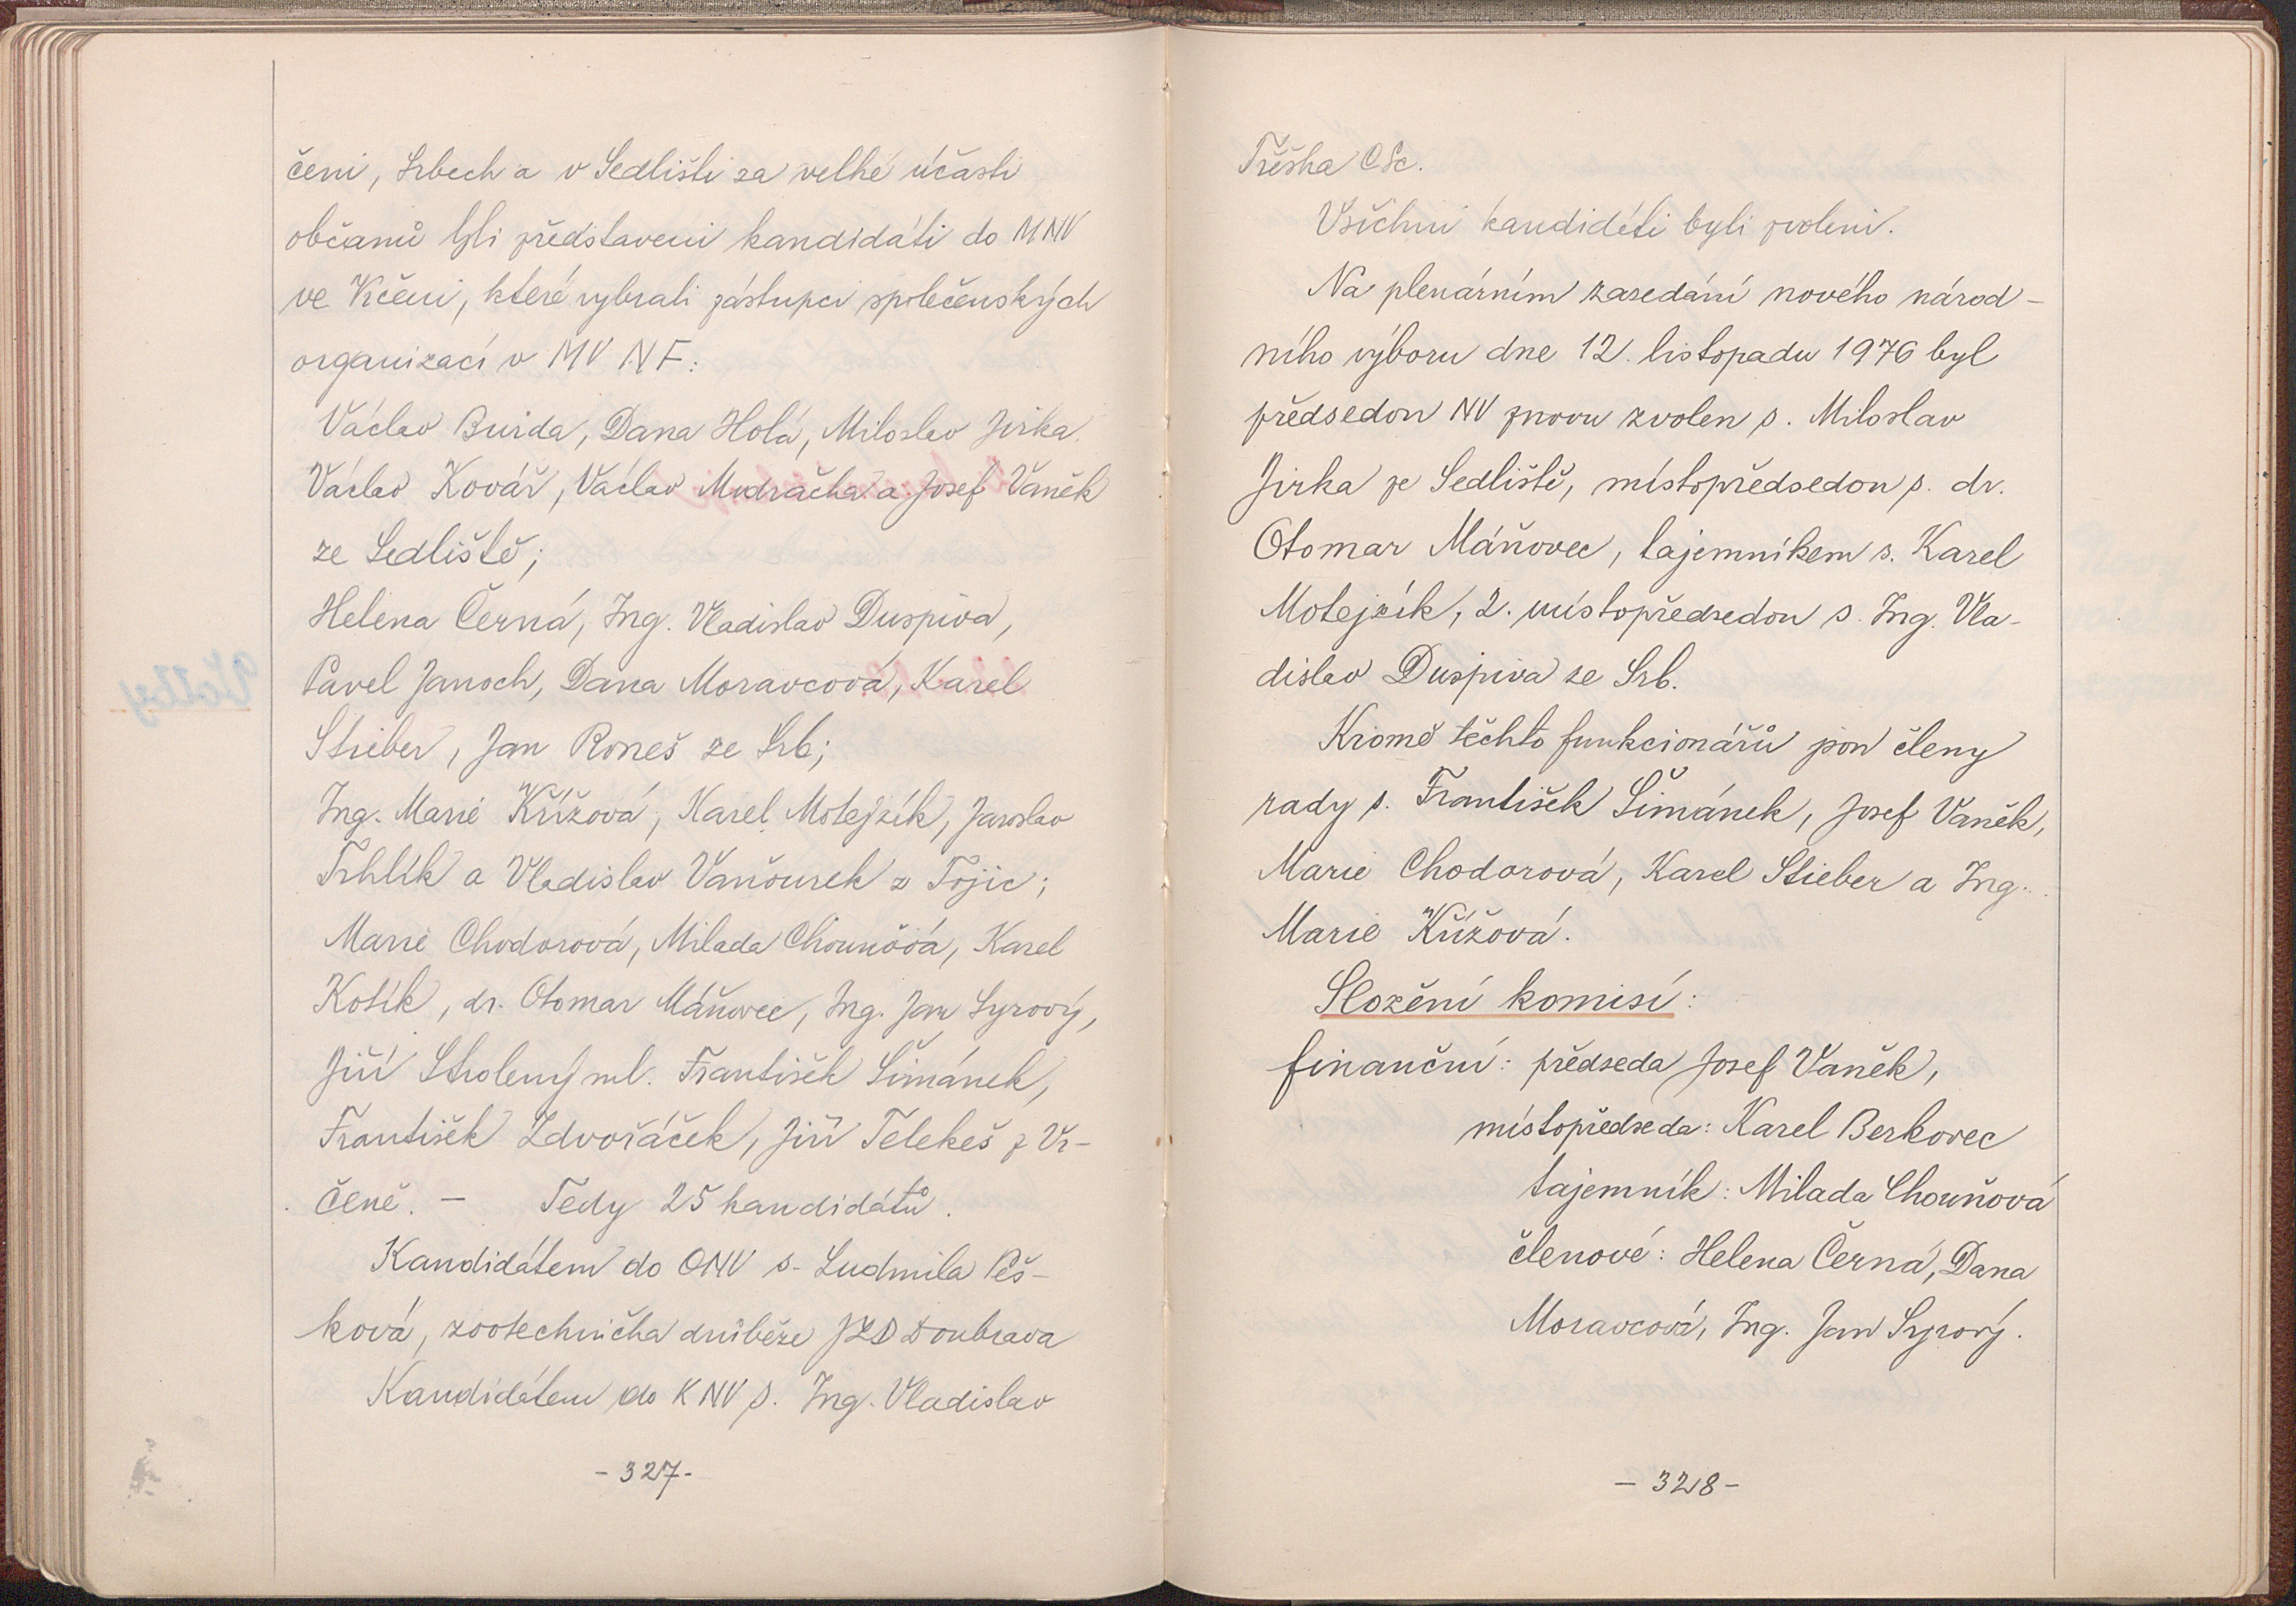 čeni, Srbech a v Sedlišti za velké účasti
občanů byli představeni kandidáti do MNV
ve Vrčeni, které vybrali zástupci společenských
organizací v MV NF:
Václav Burda, Dana Holá, Miloslav Jirka
Václav Kovář, Václav Mudračha a Josef Vaněk
ze Sedliště;
Helena Černá, Ing. Vladislav Duspiva,
Pavel Janoch, Dana Moravcová, Karel
Stieber, Jan Roneš ze Srb;
Ing. Marie Křížová, Karel Motejzík, Jaroslav
Trhlík a Vladislav Vaňourek z Tojic;
Marie Chodorová, Milada Chouňová, Karel
Kotík, dr. Otomar Máňovec, Ing. Jan Syrový,
Jiří Skolený ml. František Šimánek,
František Zdvořáček, Jiří Telekeš z Vr-
čeně. - Tedy 25 kandidátů.
Kandidátem do ONV s. Ludmila Peš-
ková, zootechnička drůbeže JZD Doubrava
Kandidátem do KNV s. Ing. Vladislav
- 327 -
Třeška CSc.
Všichni kandidáti byli zvoleni.
Na plenárním zasedání nového národ-
ního výboru dne 12. listopadu 1976 byl
předsedou NV znovu zvolen s. Miloslav
Jirka ze Sedliště, místopředsedou s. dr.
Otomar Máňovec, tajemníkem s. Karel
Motejzík, 2. místopředsedou s. Ing. Vla-
dislav Duspiva ze Srb.
Kromě těchto funkcionářů jsou členy
rady s. František Šimánek, Josef Vaněk,
Marie Chodorová, Karel Stieber a Ing.
Marie Křížová.
Složení komisí:
finanční: předseda Josef Vaněk,
místopředseda: Karel Berkovec
tajemník: Milada Chouňová
členové: Helena Černá, Dana
Moravcová, Ing. Jan Syrový.
- 328 -